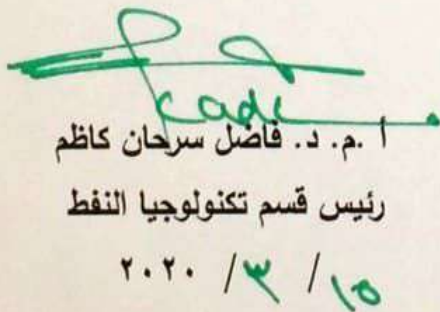 أ.م. د. فاضل سرحان كاظم
رئيس قسم تكنولوجيا النفط
١٥ / ٣ / ٢٠٢٠